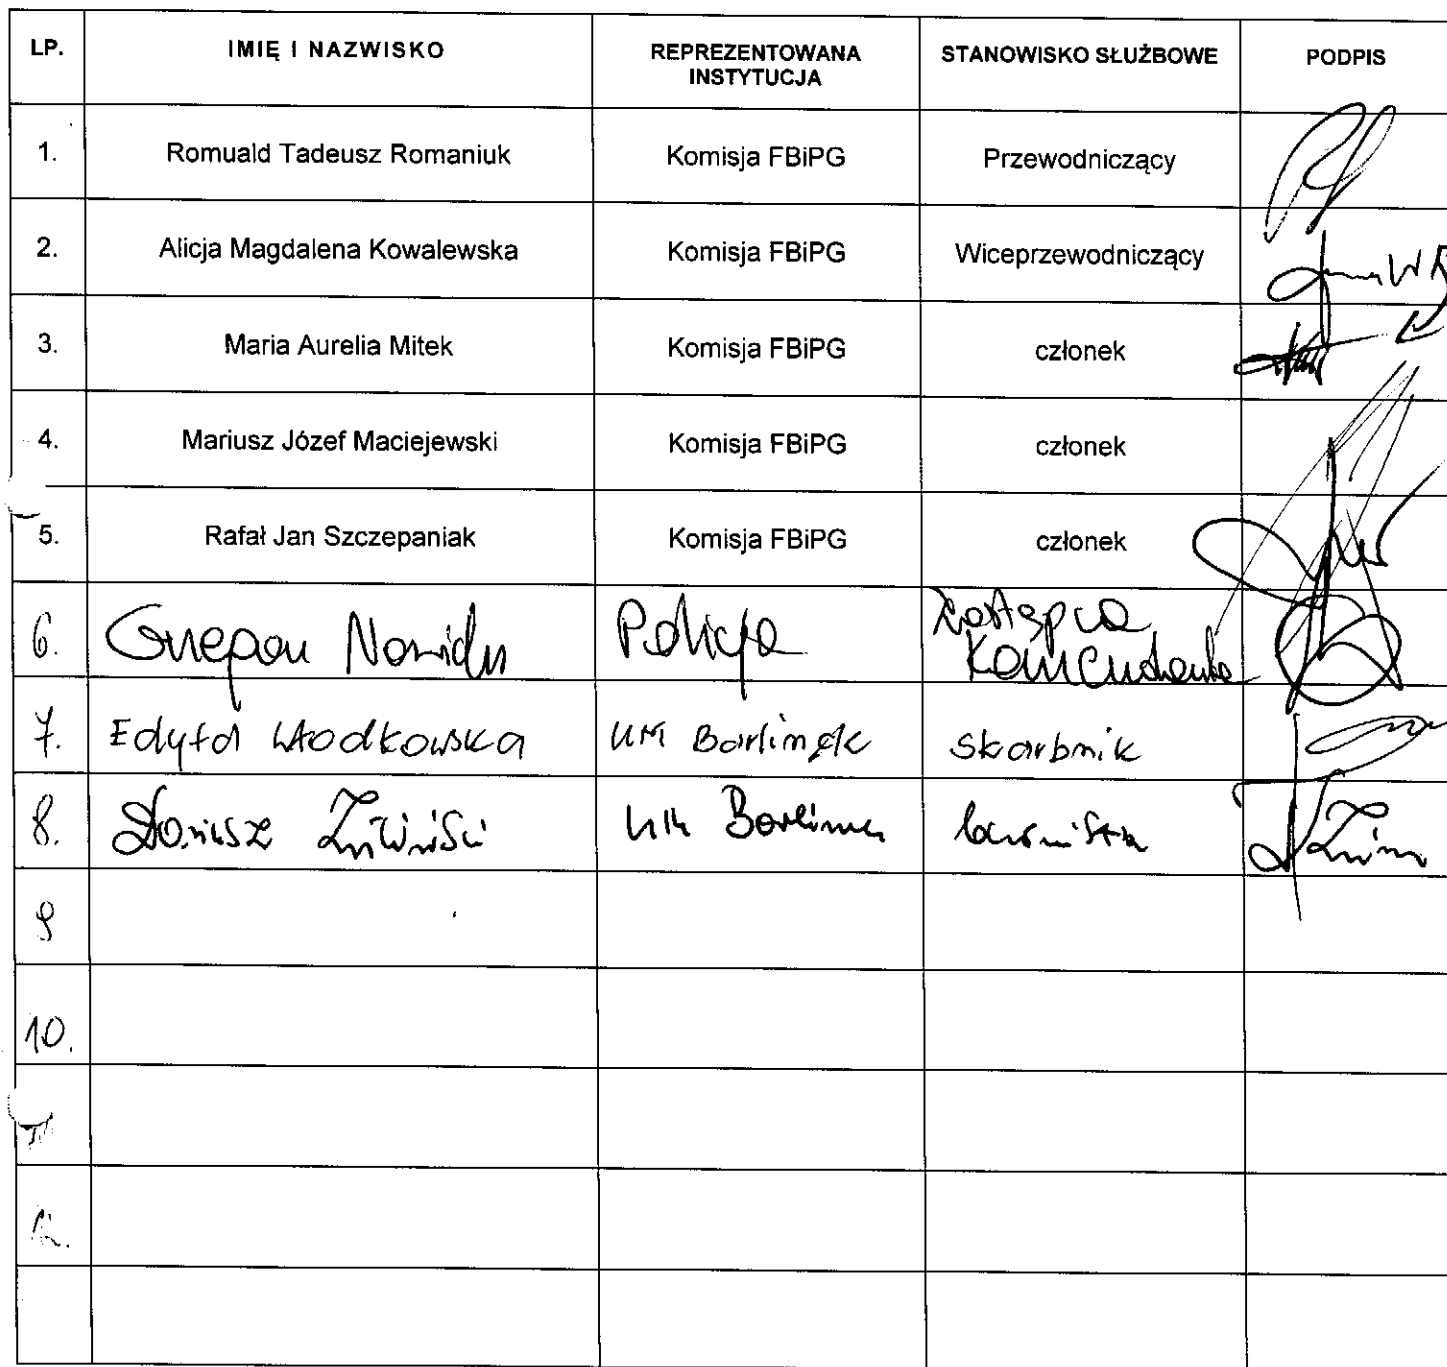 LP. IMIĘ I NAZWISKO REPREZENTOWANA INSTYTUCJA STANOWISKO SŁUŻBOWE PODPIS
1. Romuald Tadeusz Romaniuk Komisja FBiPG Przewodniczący
2. Alicja Magdalena Kowalewska Komisja FBiPG Wiceprzewodniczący
3. Maria Aurelia Mitek Komisja FBiPG członek
4. Mariusz Józef Maciejewski Komisja FBiPG członek
5. Rafał Jan Szczepaniak Komisja FBiPG członek
6. Policja Zastępca Komendanta
7. Edyta Włodkowska UM Barlinek skarbnik
8. Dariusz UM Barlinek
9
10.
11
12.